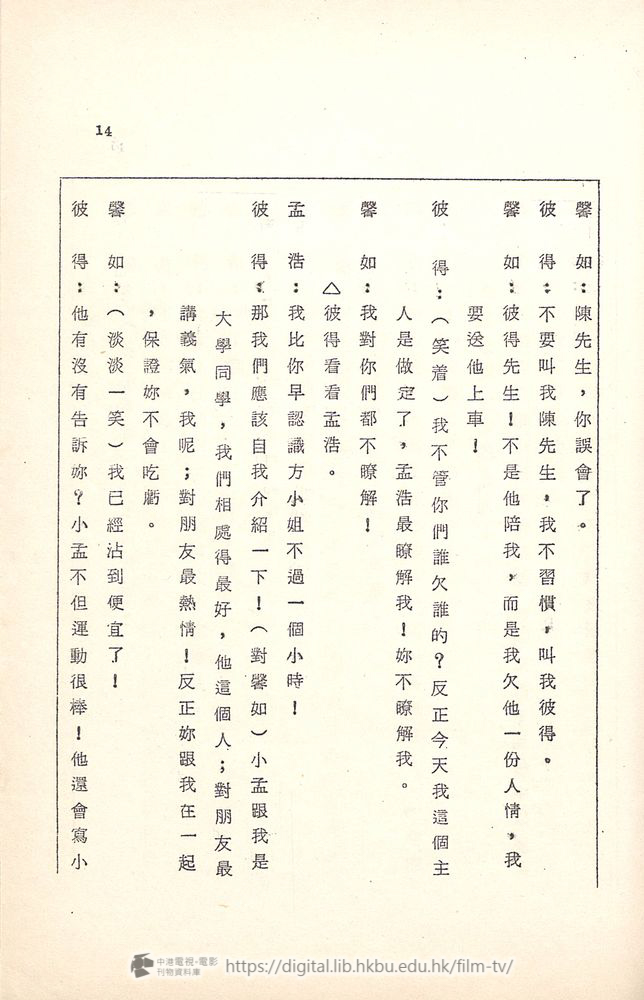 14
馨　如：陳先生，你誤會了。
彼　得：不要叫我陳先生，我不習慣，叫我彼得。
馨　如：彼得先生！不是他陪我，而是我欠他一份人情，我
要送他上車！
彼　得：（笑着）我不管你們誰欠誰的？反正今天我這個主
人是做定了，孟浩最瞭解我！妳不瞭解我。
馨　如：我對你們都不瞭解！
△彼得看看孟浩。
孟　浩：我比你早認識方小姐不過一個小時！
彼　得：那我們應該自我介紹一下！（對馨如）小孟跟我是
大學同學，我們相處得最好，他這個人；對朋友最
講義氣，我呢；對朋友最熱情！反正妳跟我在一起
，保證妳不會吃虧。
馨　如：（淡淡一笑）我已經沾到便宜了！
彼　得：他有沒有告訴妳？小孟不但運動很棒！他還會寫小
中港電視·電影
刊物資料庫
https://digital.lib.hkbu.edu.hk/film-tv/